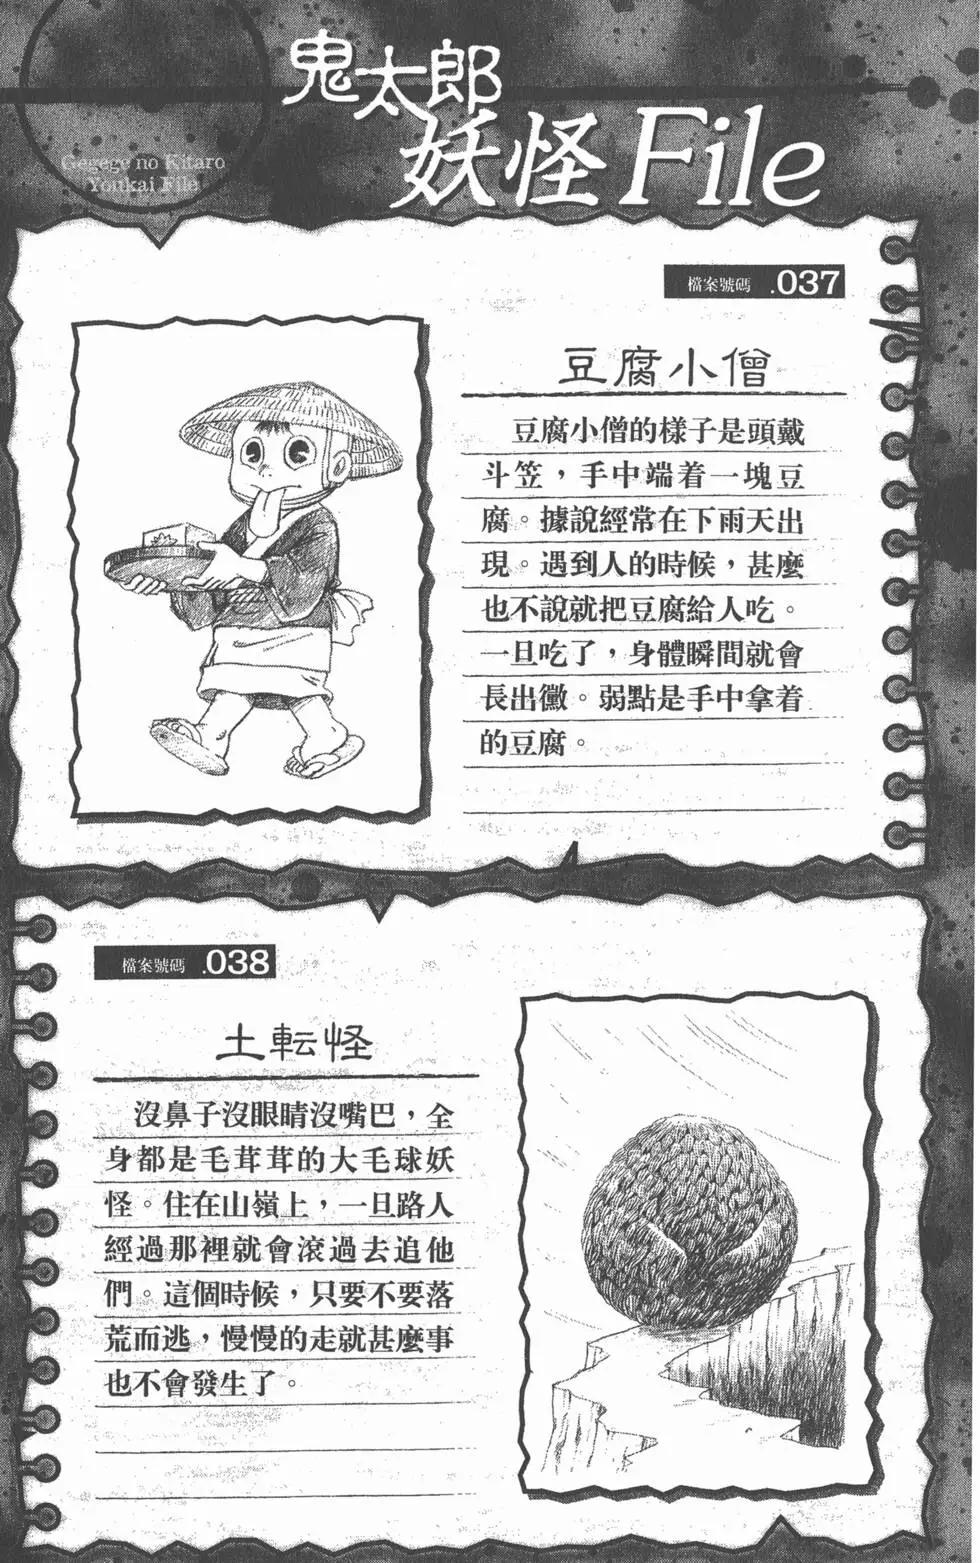 鬼太郎
妖怪File
Gegege no Kitaro
Youkai File
檔案號碼 .037
豆腐小僧
豆腐小僧的樣子是頭戴
斗笠，手中端着一塊豆
腐。據說經常在下雨天出
現。遇到人的時候，甚麼
也不說就把豆腐給人吃。
一旦吃了，身體瞬間就會
長出黴。弱點是手中拿着
的豆腐。
檔案號碼 .038
土転怪
沒鼻子沒眼睛沒嘴巴，全
身都是毛茸茸的大毛球妖
怪。住在山嶺上，一旦路人
經過那裡就會滾過去追他
們。這個時候，只要不要落
荒而逃，慢慢的走就甚麼事
也不會發生了。